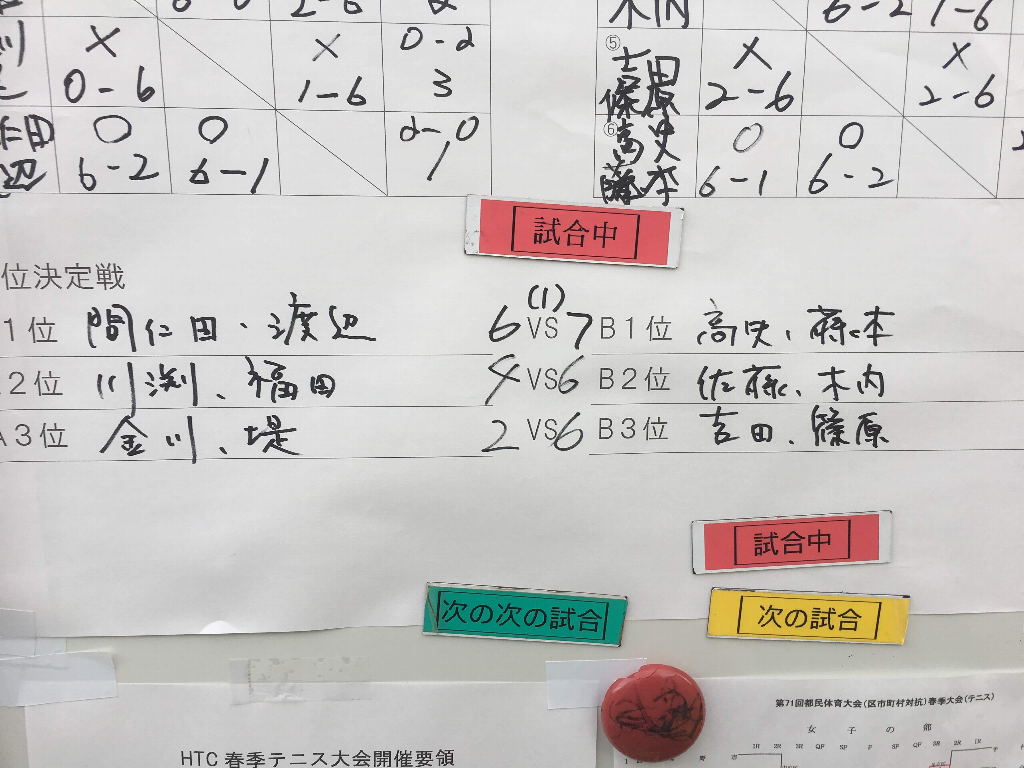 2-6
6-2 1-6
木内
川 × × 0-2
0-6 1-6 3
仁田 ○ ○ 2-0
辺 6-2 6-1 1
⑤ 吉田 × ×
篠原 2-6 2-6
⑥ 高史 ○ ○
藤本 6-1 6-2
試合中
位決定戦
1位 間仁田・渡辺 6 (1) VS 7 B1位 高史、藤本
2位 川渕、福田 4 VS 6 B2位 佐藤、木内
A3位 金川、堤 2 VS 6 B3位 吉田、篠原
試合中
次の次の試合
次の試合
HTC 春季テニス大会開催要領
第71回都民体育大会(区市町村対抗)春季大会(テニス)
女子の部
1R 2R 3R QF SF F SF QF 3R 2R 1R